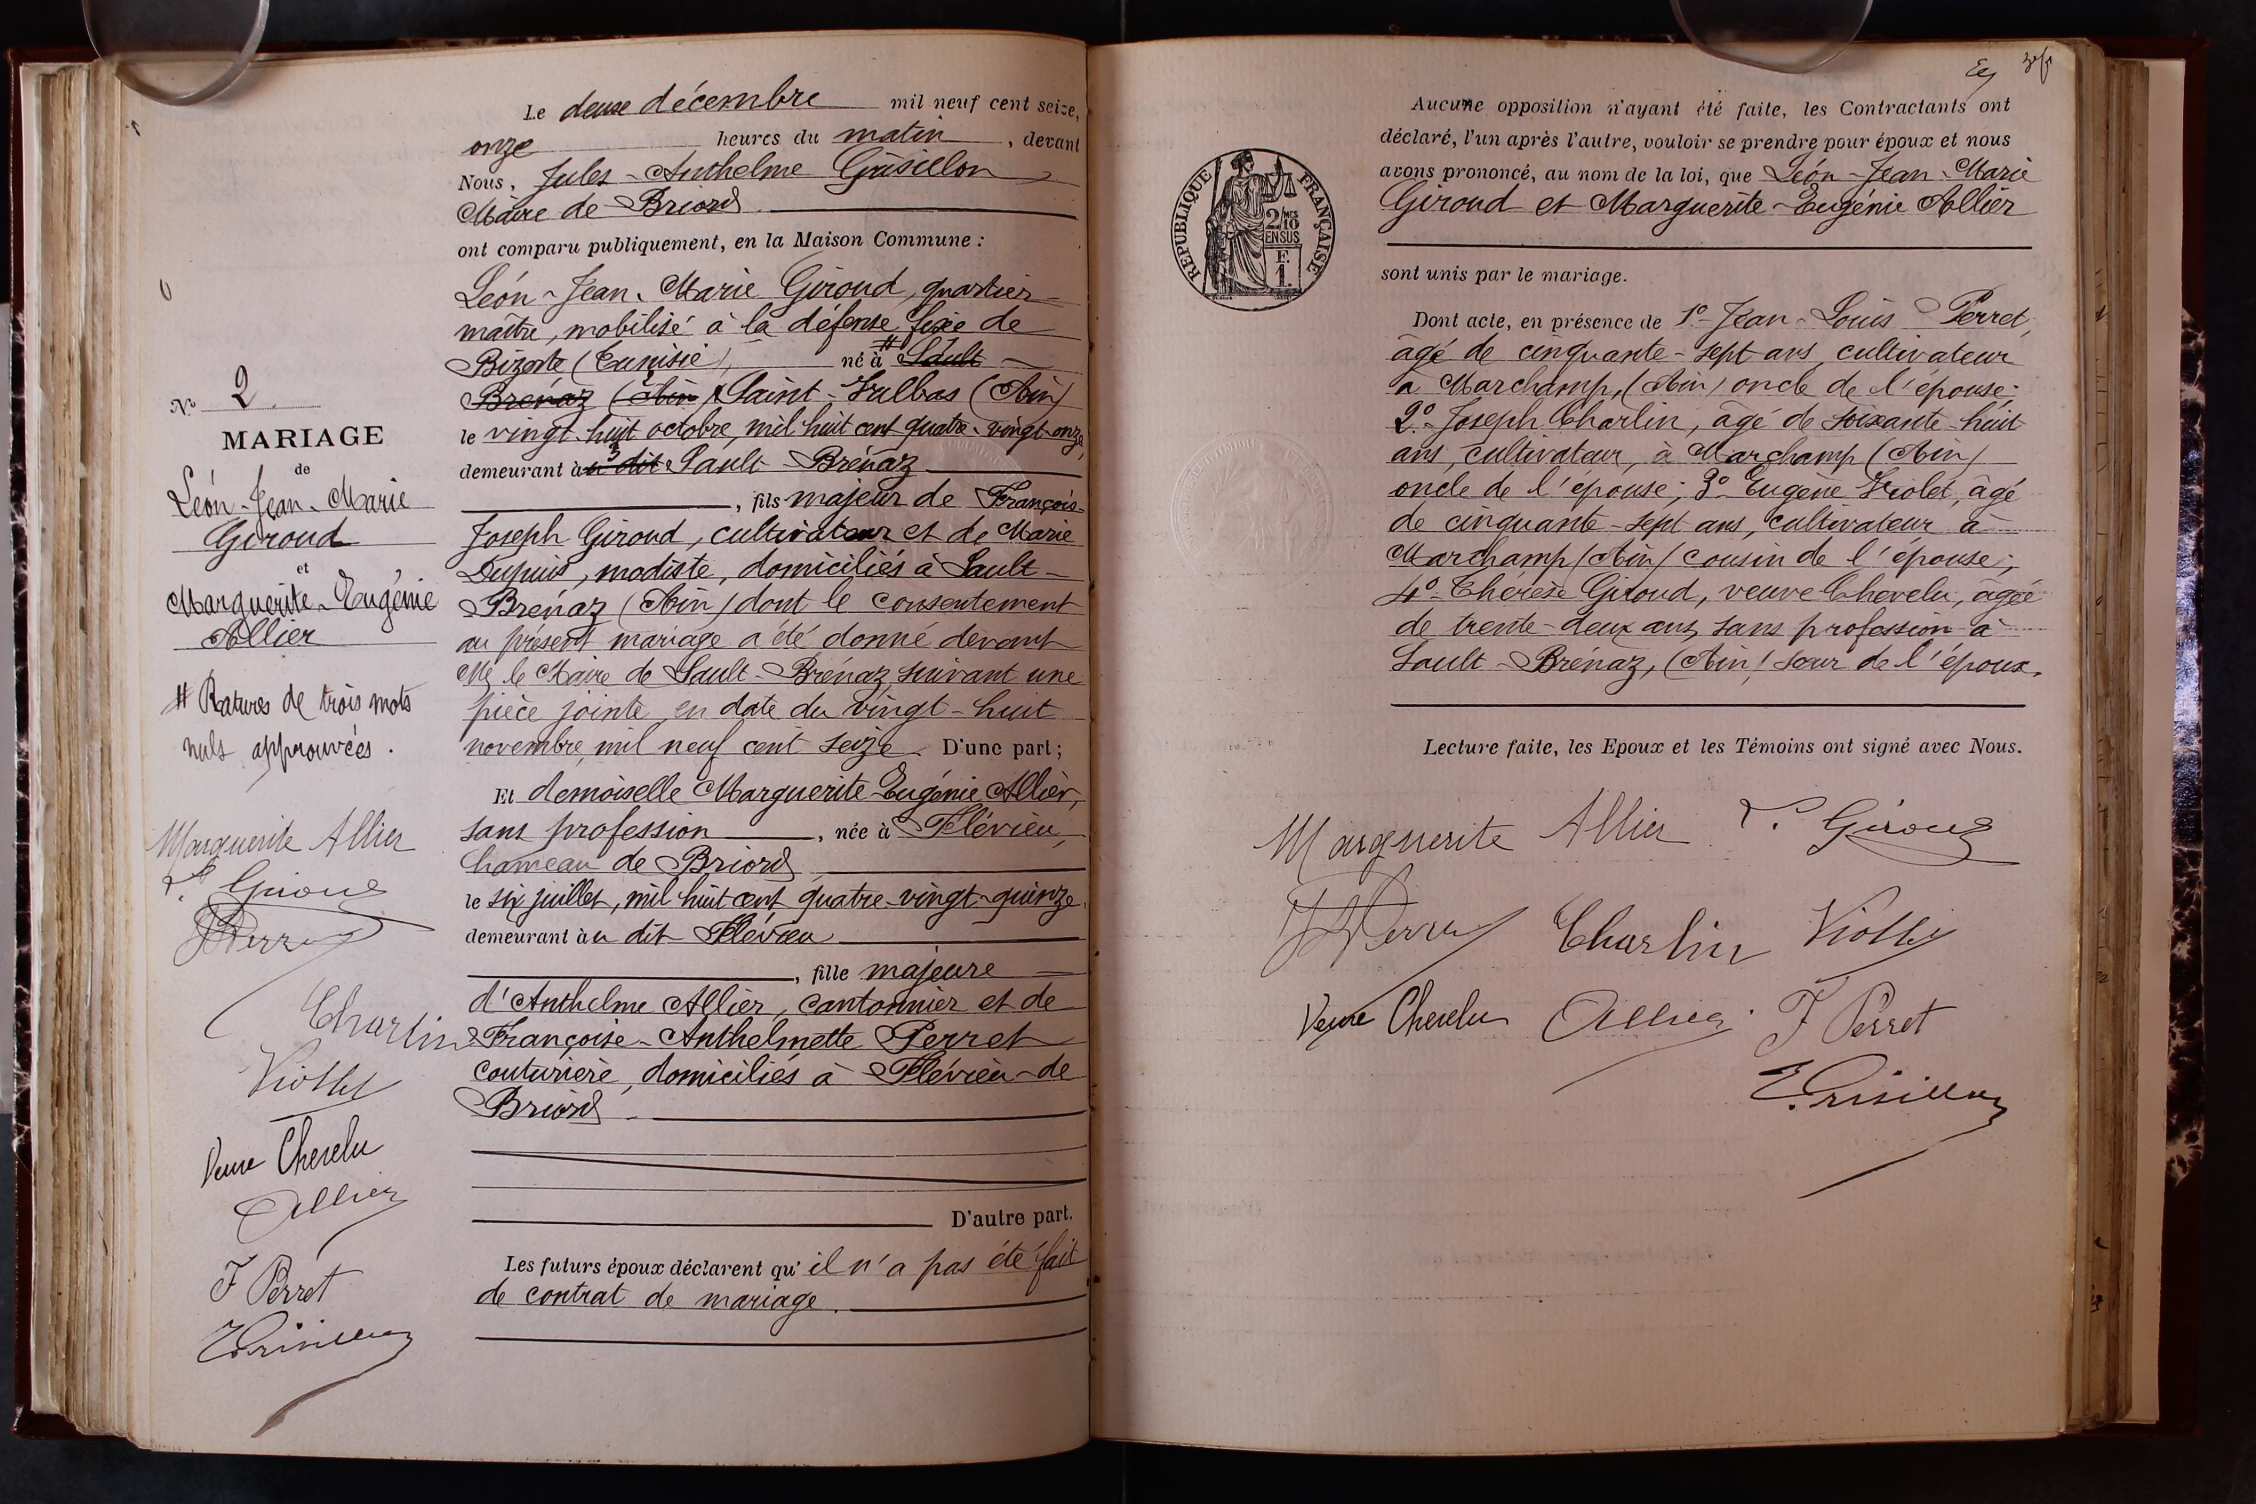 Le deux décembre mil neuf cent seize,
onze heures du matin, devant
Nous, Jules-Anthelme Grisillon
Maire de Briord
ont comparu publiquement, en la Maison Commune :
Léon-Jean-Marie Giroud, quartier-
maître, mobilisé à la défense fixe de
Bizerte (Tunisie), né à # Sault
Brénaz (Ain) Saint-Vulbas (Ain)
le vingt-huit octobre, mil huit cent quatre-vingt-onze,
demeurant à u dit Sault-Brénaz
, fils majeur de François-
Joseph Giroud, cultivateur et de Marie
Dupuis, modiste, domiciliés à Sault-
Brénaz (Ain) dont le consentement
au présent mariage a été donné devant
Mr le Maire de Sault-Brénaz, suivant une
pièce jointe en date du vingt-huit
novembre, mil neuf cent seize. D'une part ;
Et demoiselle Marguerite-Eugénie Allier,
sans profession, née à Flévieu,
hameau de Briord
le six juillet, mil huit cent quatre-vingt-quinze,
demeurant à u dit Flévieu
, fille majeure
d'Anthelme Allier, cantonnier et de
Françoise-Anthelmette Perret
couturière, domiciliés à Flévieu-de
Briord
D'autre part.
Les futurs époux déclarent qu'il n'a pas été fait
de contrat de mariage.
No 2
MARIAGE
de
Léon-Jean-Marie
Giroud
et
Marguerite-Eugénie
Allier
# Ratures de trois mots
nuls approuvées.
Marguerite Allier
L. Giroud
JL Perret
Charlin
Viollet
Veuve Chevelu
Allier
F Perret
Grisillon
Aucune opposition n'ayant été faite, les Contractants ont
déclaré, l'un après l'autre, vouloir se prendre pour époux et nous
avons prononcé, au nom de la loi, que Léon-Jean-Marie
Giroud et Marguerite-Eugénie Allier
sont unis par le mariage.
RÉPUBLIQUE FRANÇAISE
2/10 MES
EN SUS
F.
1.
Dont acte, en présence de 1º-Jean-Louis Perret,
âgé de cinquante-sept ans, cultivateur
à Marchamp, (Ain) oncle de l'épouse;
2º-Joseph Charlin, âgé de soixante-huit
ans, cultivateur, à Marchamp (Ain)
oncle de l'épouse; 3º-Eugène Violet, âgé
de cinquante-sept ans, cultivateur à
Marchamp (Ain) cousin de l'épouse;
4º-Thérèse Giroud, veuve Chevelu, âgée
de trente-deux ans, sans profession à
Sault-Brénaz, (Ain) sœur de l'époux.
Lecture faite, les Epoux et les Témoins ont signé avec Nous.
Marguerite Allier L. Giroud
JL Perret Charlin Viollet
Veuve Chevelu Allier F Perret
Grisillon